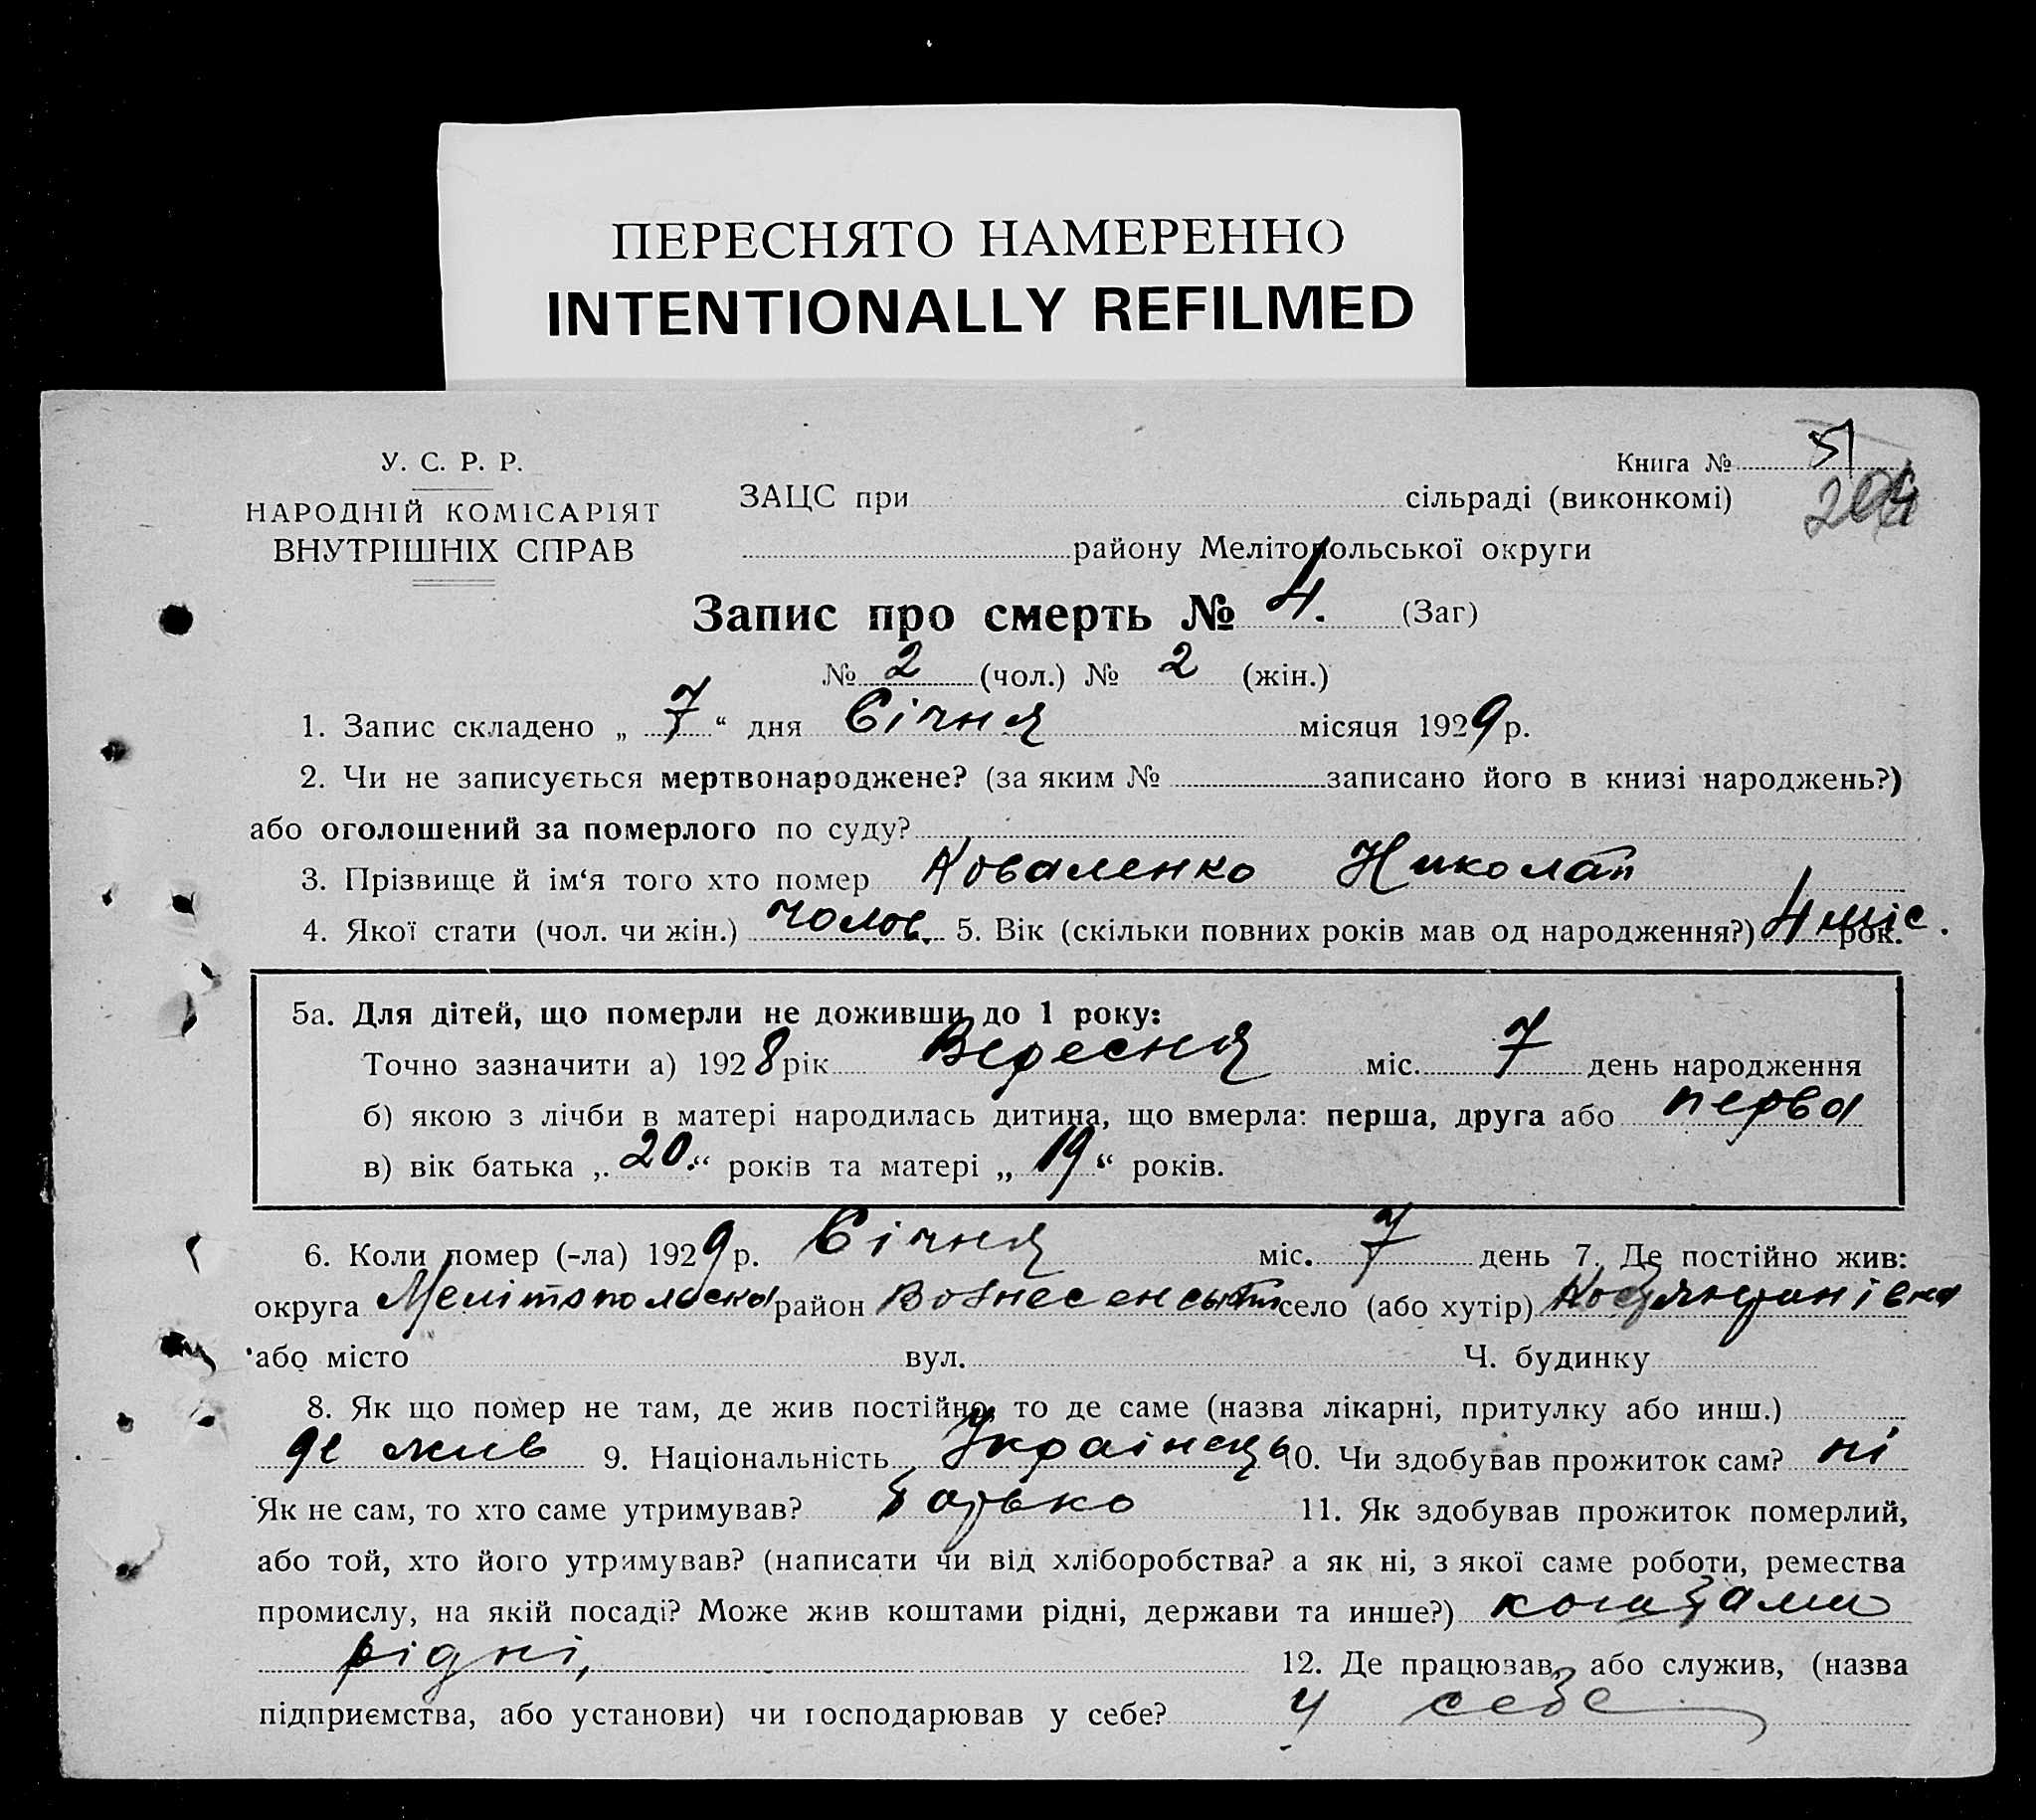 ПЕРЕСНЯТО НАМЕРЕННО
INTENTIONALLY REFILMED
У. С. Р. Р.
НАРОДНІЙ КОМІСАРІЯТ
ВНУТРІШНІХ СПРАВ
Книга № 51
204
ЗАЦС при сільраді (виконкомі)
району Мелітопольської округи
Запис про смерть № 4. (Заг)
№ 2 (чол.) № 2 (жін.)
1. Запис складено „ 7 “ дня Січня місяця 1929 р.
2. Чи не записується мертвонароджене? (за яким № записано його в книзі народжень?)
або оголошений за померлого по суду?
3. Прізвище й ім‘я того хто помер Коваленко Николай
4. Якої стати (чол. чи жін.) чолов. 5. Вік (скільки повних років мав од народження?) 4 міс. рок.
5а. Для дітей, що померли не доживши до 1 року:
Точно зазначити а) 1928 рік Вересня міс. 7 день народження
б) якою з лічби в матері народилась дитина, що вмерла: перша, друга або перва
в) вік батька „ 20. “ років та матері „ 19 “ років.
6. Коли помер (-ла) 1929 р. Січня міс. 7 день 7. Де постійно жив:
округа Мелітопольска район Вознесенський село (або хутір)
або місто вул. Ч. будинку
8. Як що помер не там, де жив постійно, то де саме (назва лікарні, притулку або инш.)
де жив 9. Національність Українець 10. Чи здобував прожиток сам? ні
Як не сам, то хто саме утримував? батько 11. Як здобував прожиток померлий,
або той, хто його утримував? (написати чи від хліборобства? а як ні, з якої саме роботи, ремества
промислу, на якій посаді? Може жив коштами рідні, держави та инше?) коштами
рідні, 12. Де працював, або служив, (назва
підприємства, або установи) чи господарював у себе? у себе